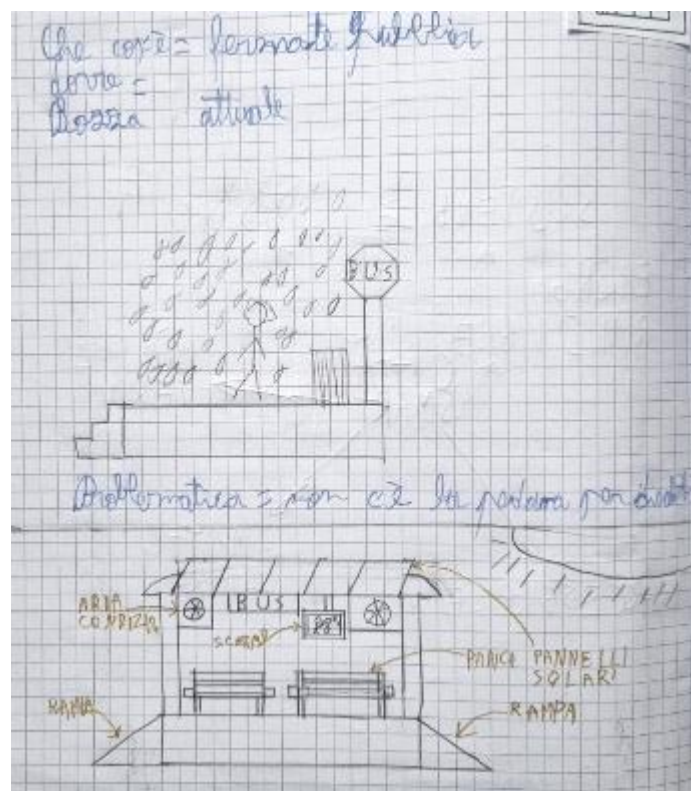 Che cos'è = fermate pubblica
dove =
Bozza attuale
BUS
Problematica = non c'è la pedana per disabili
ARIA
CONDIZIO
BUS
SCERMO
PANCA
PANNELLI
SOLARI
RAMPA
RAMPA